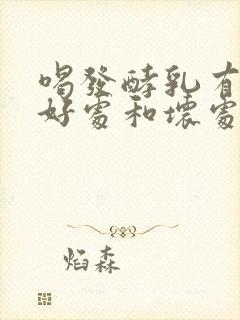 喝發酵乳有
好處和壞處
焰森